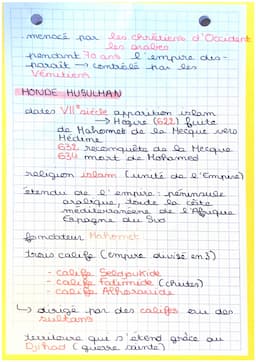 menacé par les chrétiens d'Occident
les arabes
pendant 70 ans l'empire dis-
parait → controlé par les
Vénitiens
MONDE MUSULMAN
dates VIIe siècle apparition islam
→ Hégire (622) fuite
de Mahomet de la Mecque vers
Médine
632 reconquête de la Mecque
634 mort de Mohamed
religion islam (unité de l'Empire)
étendu de l'empire : péninsule
arabique, toute la côte
méditerranéenne de l'Afrique
Espagne au Sud
fondateur Mahomet
trois califs (empire divisé en 3)
- calife Seldjoukide
- calife Fatimide (chutes)
- calife Almoravide
↳ dirigé par des califes ou des
sultans
territoire qui s'étend grâce au
Djihad (guerre sainte)